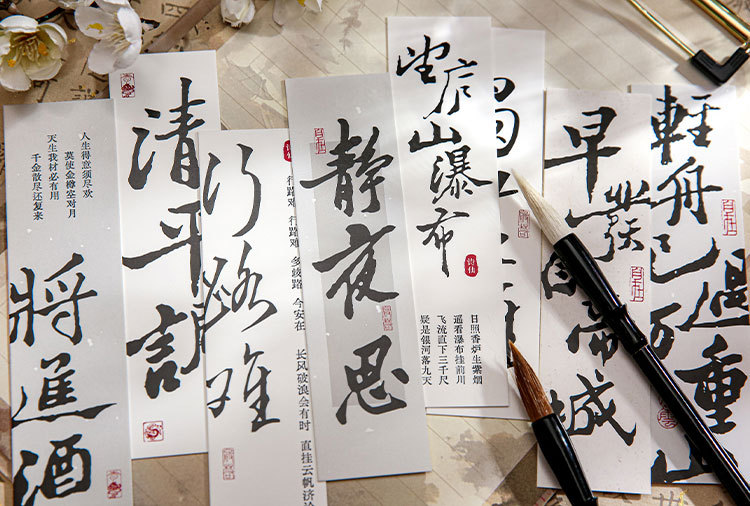 人生得意须尽欢
莫使金樽空对月
天生我材必有用
千金散尽还复来
將進酒
清平
行路难
行路难 行路难 多歧路 今安在
长风破浪会有时 直挂云帆济
静夜思
望庐山瀑布
诗仙
日照香炉生紫烟
遥看瀑布挂前川
飞流直下三千尺
疑是银河落九天
早發白帝城
輕舟已過万重山